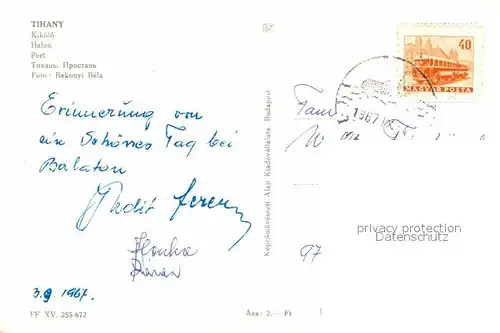 TIHANY
Kikötő
Hafen
Port
Тихань. Пристань
Foto : Bakonyi Béla
Erinnerung von
ein Schönes Tag bei
Balaton
3.9 1967.
FF XV. 255-672
Ára: 2.— Ft
Képzőművészeti Alap Kiadóvállalata, Budapest
40
MAGYAR POSTA
1967
Fam
W
97
privacy protection
Datenschutz